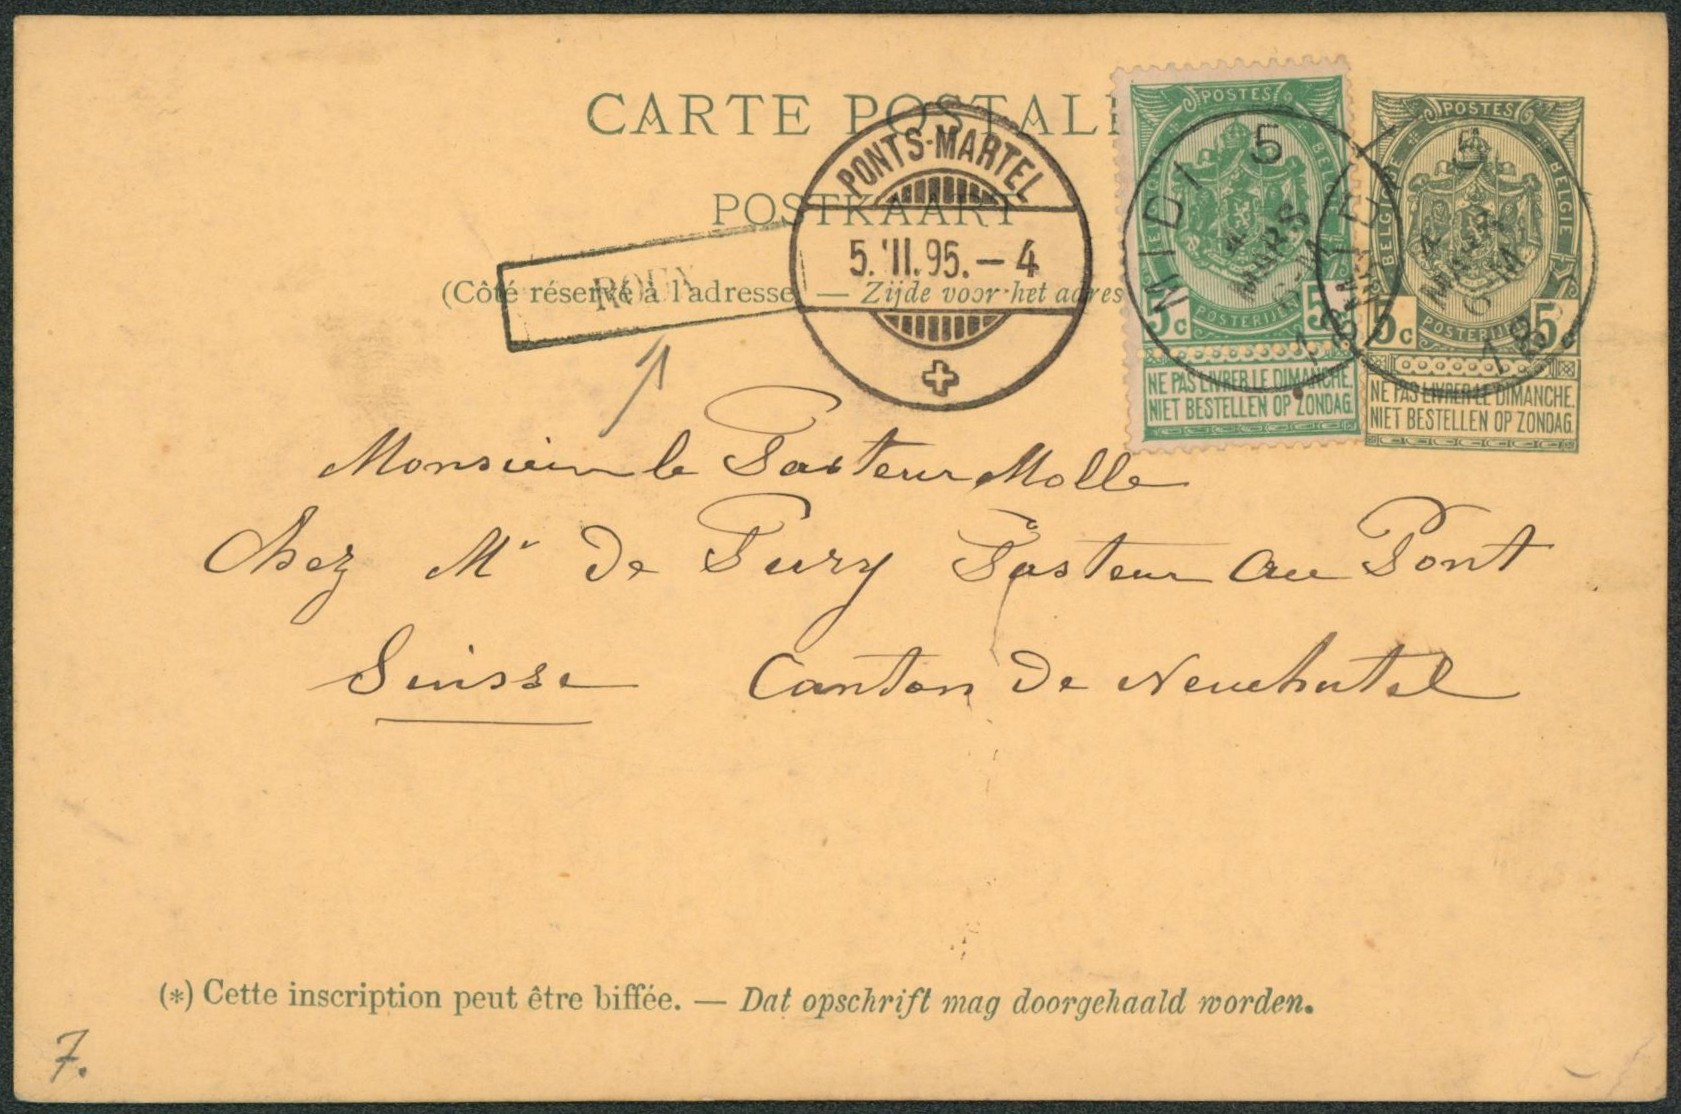 CARTE POSTALE
POSTKAART
(Côté réservé à l'adresse) — Zijde voor het adres
ROUX
PONTS-MARTEL
5. III. 95. – 4
POSTES
BELGIQUE BELGIE
5c 5c
POSTERIJEN
NE PAS LIVRER LE DIMANCHE.
NIET BESTELLEN OP ZONDAG.
MIDI 5
4
MARS
6-M
1895
POSTES
BELGIQUE BELGIE
5c 5c
POSTERIJEN
NE PAS LIVRER LE DIMANCHE.
NIET BESTELLEN OP ZONDAG.
MIDI 5
4
MARS
6-M
1895
Monsieur le Pasteur Molle
Chez Mr de Pury Pasteur au Pont
Suisse Canton de Neuchatel
(*) Cette inscription peut être biffée. — Dat opschrift mag doorgehaald worden.
7.